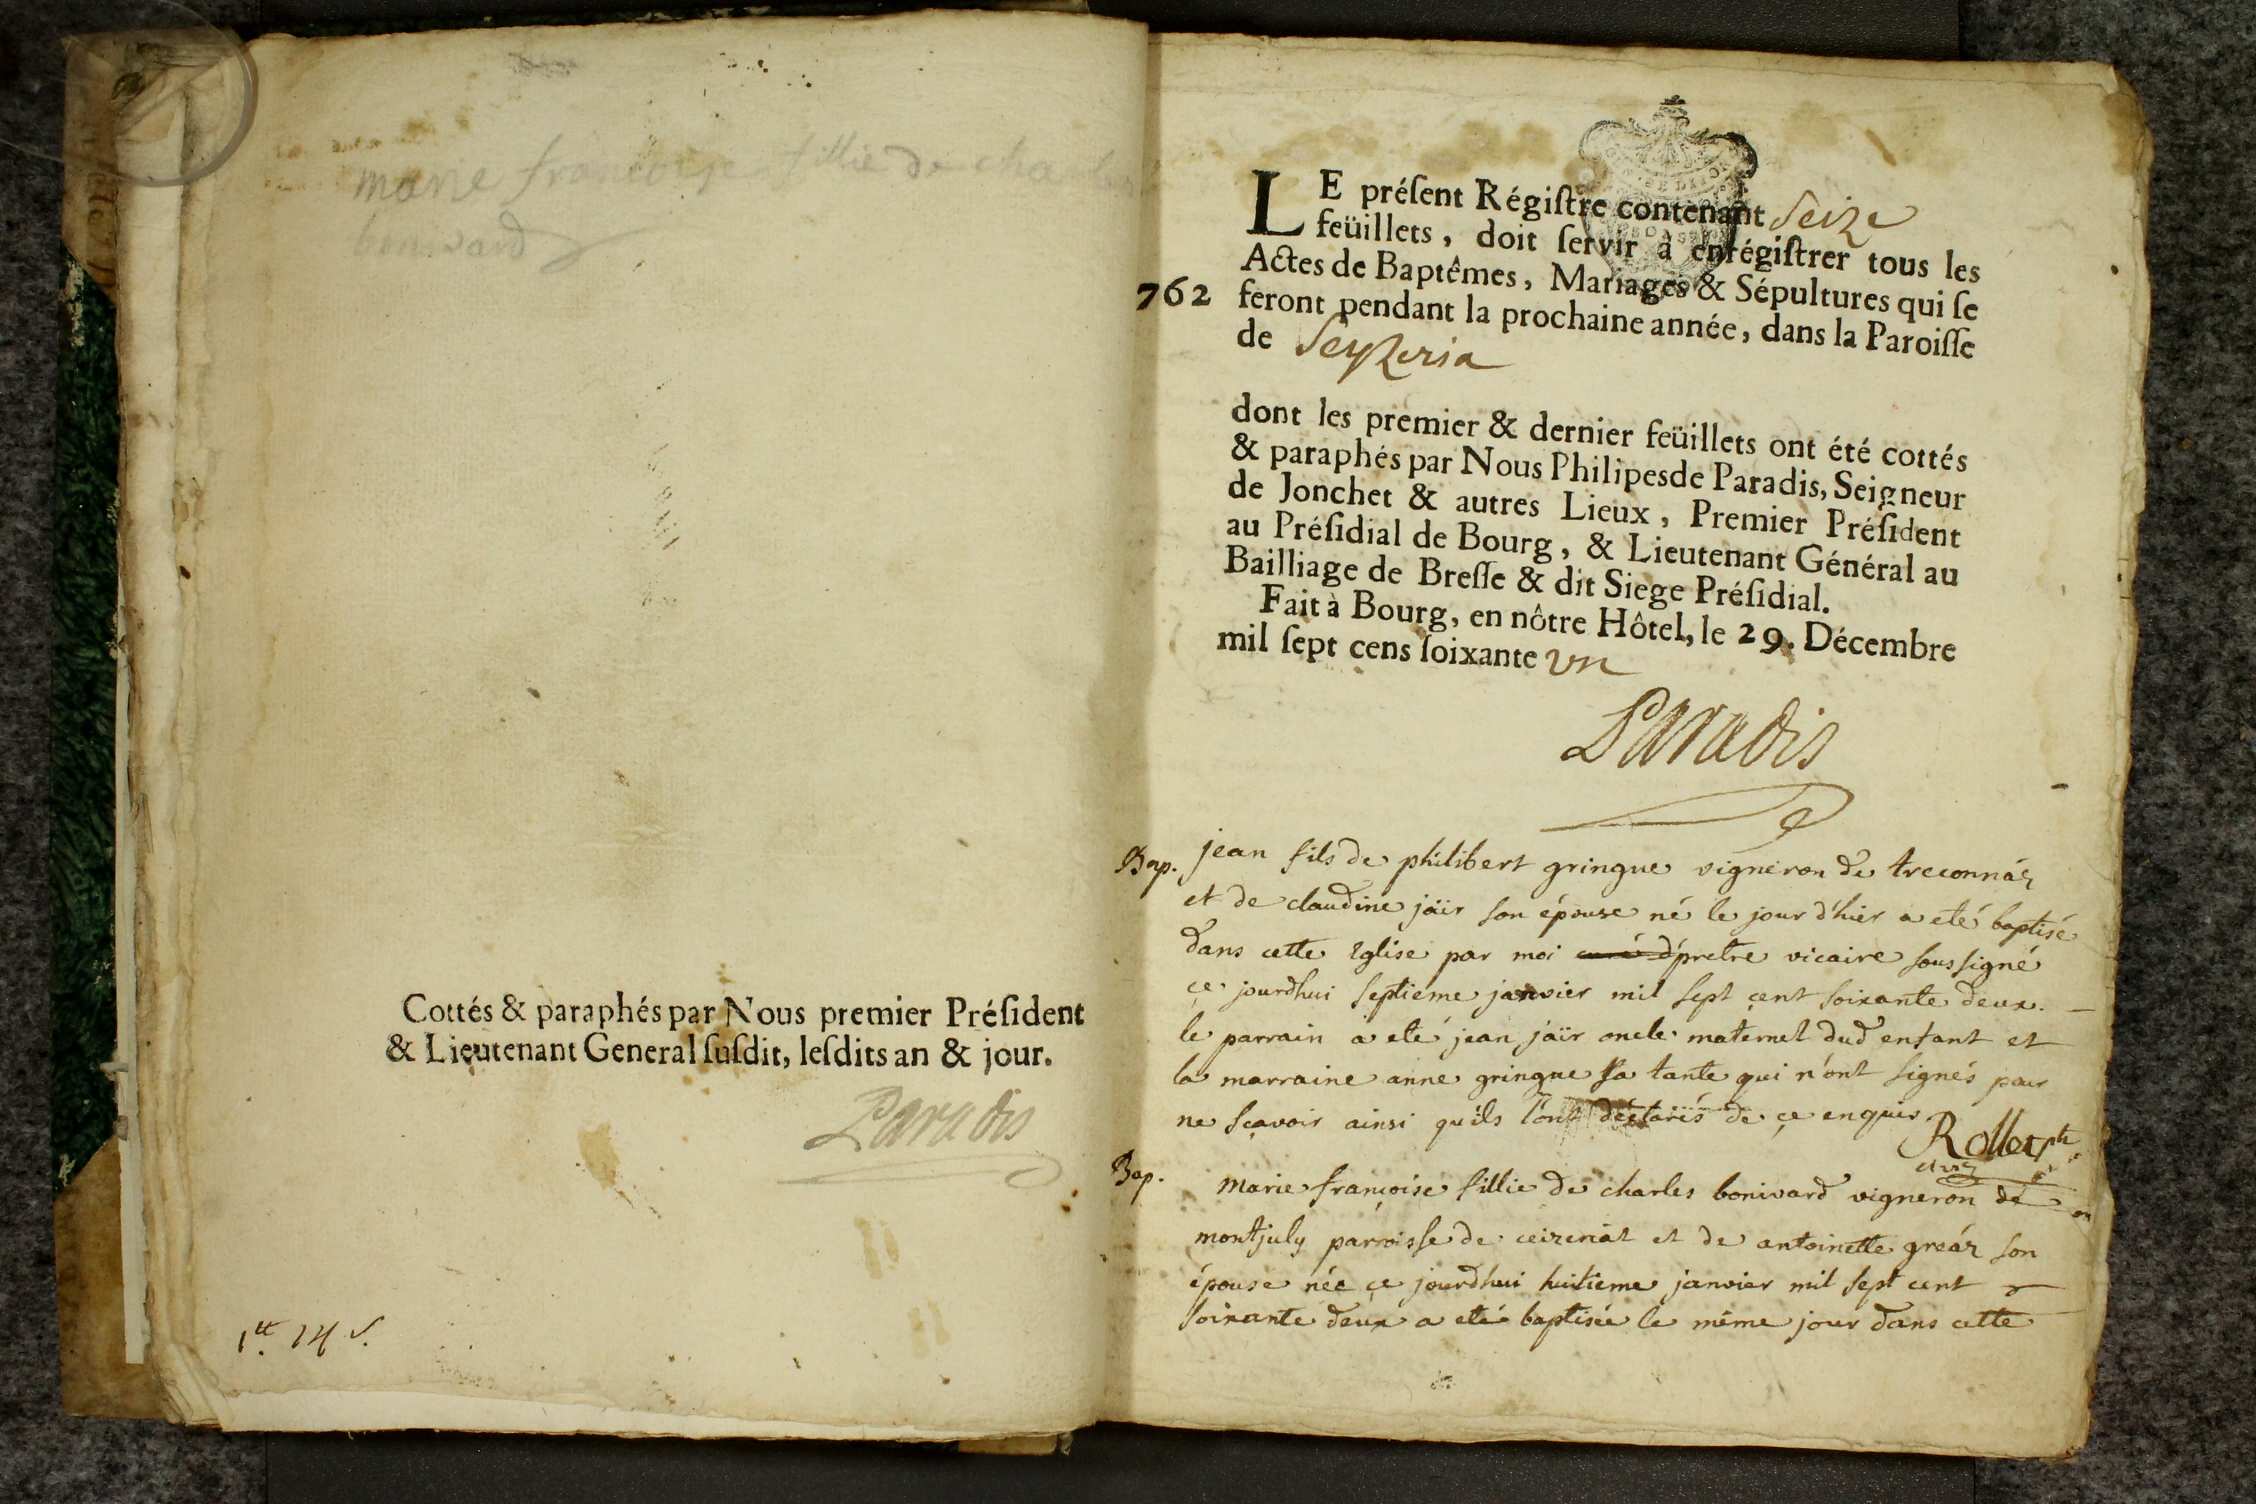 marie francoise fillie de cha
bonivard
Cottés & paraphés par Nous premier Préſident
& Lieutenant General ſuſdit, leſdits an & jour.
Paradis
LE préſent Régiſtre contenant Seize
feüillets, doit ſervir à enrégiſtrer tous les
Actes de Baptêmes, Mariages & Sépultures qui ſe
762 feront pendant la prochaine année, dans la Paroiſſe
de Seyzeria
dont les premier & dernier feüillets ont été cottés
& paraphés par Nous Philipes de Paradis, Seigneur
de Jonchet & autres Lieux, Premier Préſident
au Préſidial de Bourg, & Lieutenant Général au
Bailliage de Breſſe & dit Siege Préſidial.
Fait à Bourg, en nôtre Hôtel, le 29. Décembre
mil ſept cens ſoixante un
Paradis
Bap. jean fils de philibert gringue vigneron de treconnáz
et de claudine jäir son épouse né le jour d'hier a eté baptisé
dans cette Eglise par moi pretre vicaire soussigné
ce jourdhui septieme janvier mil sept çent soixante deux.
le parrain a eté jean jäir oncle maternel dud enfant et
la marraine anne gringue sa tante qui n'ont signés pour
ne sçavoir ainsi qu'ils l'ont déclarés de çe enquis
Rollet ptre
vic
Bap. marie françoise fillie de charles bonivard vigneron de
montjuly parroisse de ceizeriat et de antoinette greáz son
épouse née çe jourdhui huitieme janvier mil sept cent
soixante deux a eté baptisée le même jour dans cette